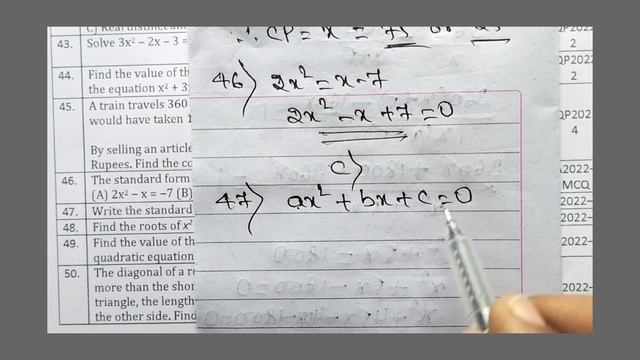 C) Real distinct and
43. Solve 3x² – 2x – 3 =
44. Find the value of th
the equation x² + 3
45. A train travels 360
would have taken 1
By selling an article
Rupees. Find the co
46. The standard form
(A) 2x² – x = –7 (B)
47. Write the standard
48. Find the roots of x²
49. Find the value of th
quadratic equation
50. The diagonal of a re
more than the shor
triangle, the length
the other side. Find
∴ CP = x = 75 or 25
46) 2x² = x - 7
2x² - x + 7 = 0
C)
47) ax² + bx + c = 0
QP2022
2
QP2022
2
QP202
4
2022-
MCQ
2022-
2022-
2022-
2022-